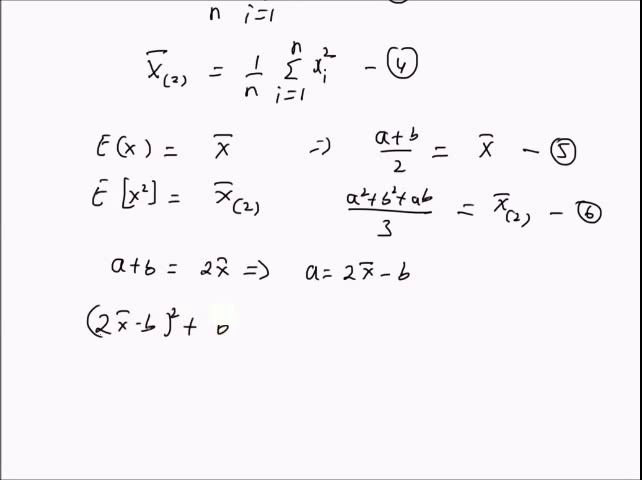 n i=1
x̄₍₂₎ = 1/n Σⁿᵢ₌₁ xᵢ² - ④
E(x) = x̄ => a+b/2 = x̄ - ⑤
E[x²] = x̄₍₂₎ a²+b²+ab/3 = x̄₍₂₎ - ⑥
a+b = 2x̄ => a = 2x̄ - b
(2x̄-b)² + b